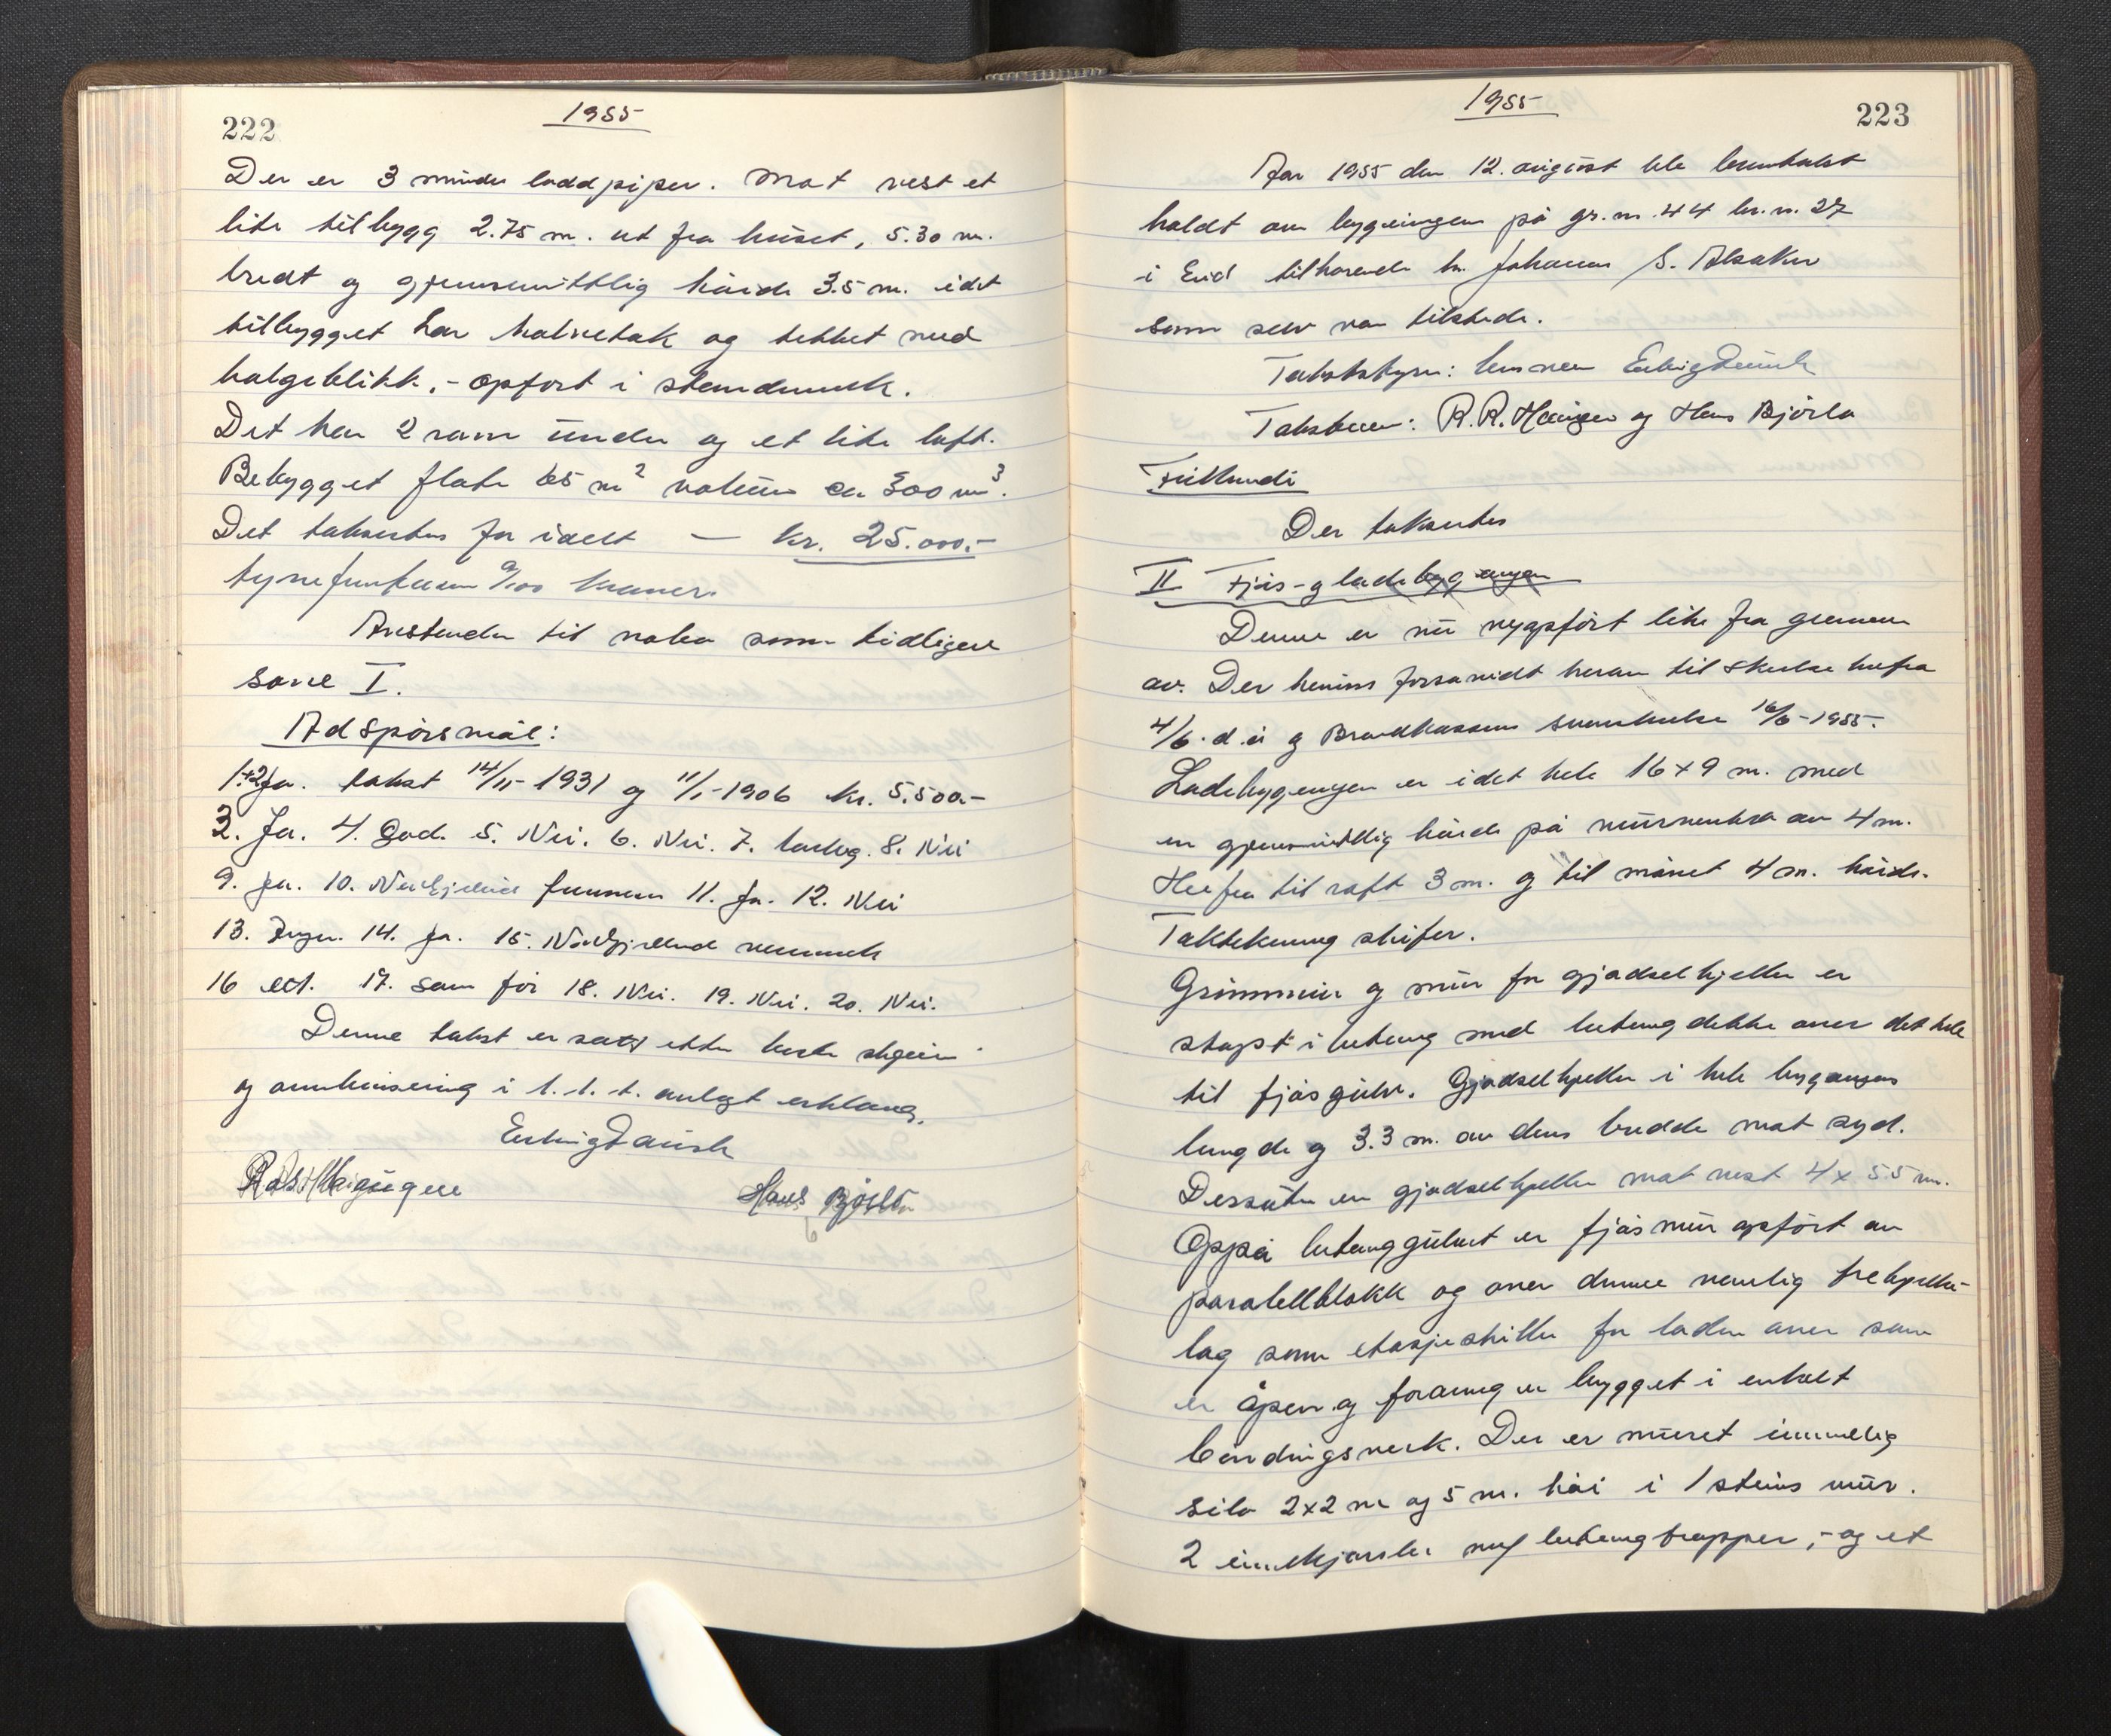 222
1955
Der er 3 mindre loddpiper. Mot vest et
lite tilbygg 2.75 m. ut fra huset, 5.30 m.
bredt og gjennemsnittlig höide 3.5 m. idet
tilbygget har halvetak og tekket med
bølgeblikk, - opført i stenderverk.
Det har 2 rom under og et lite loft.
Bebygget flate 65 m² volum ca 300 m³.
Det takseres for idelt — kr. 25.000.-
tyvefemtusen 0/100 kroner.
Avstander til nabo som tidligere
sone I.
Ad spörsmål:
1+2 Ja. takst 14/11-1931 og 11/1-1906 kr. 5.500.-
3. Ja. 4. God. 5. Nei. 6. Nei. 7. 8. Nei
9. Ja. 10. Vedkjellar 11. Ja. 12. Nei
13. Ingen. 14. Ja. 15.
16 ect. 17. som för 18. Nei. 19. Nei. 20. Nei.
Denne takst er satt etter beste skjönn
og overbevisning i h.h.t. avlagt erklæring.
Erling Dansk
Hans Bjørlo
1955
223
Aar 1955 den 12. august ble branntakst
holdt over bygningen på gr.nr. 44 br.nr. 27
i Eid tilhørende hr. Johannes S. Alsaker
som selv var tilstede.
Takststyrer: lensmann Erling Dansk
Takstmenn: R. R. Haugen og Hans Bjørlo
Der takseres
II Fjös- og ladebygningen
Denne er nu nyopfört like fra grunnen
av. Der henvises forsåvidt herom til skrivelse herfra
4/6 d.å og Brandkassens svarskrivelse 16/6-1955.
Ladebygningen er i det hele 16 x 9 m. med
en gjennomsnittlig höide på murverket av 4 m.
Herfra til raft 3 m. og til mönet 4 m. höide.
Taktekning skifer.
Grunnmur og mur for gjødselkjeller er
støpt i betong med betongdekke over det hele
til fjösgulv. Gjødselkjeller i hele bygningens
lengde og 3.3 m. av dens bredde mot syd.
Dessuten en gjødselkjeller mot vest 4 x 5.5 m.
Oppå betonggulvet er fjösmur opfört av
paralellblokk og over denne vanlig trebjelke-
lag som etasjeskille for laden over som
er åpen og forøvrig er bygget i enkelt
bindingsverk. Der er muret innvendig
silo 2x2 m og 5 m. höi i 1 steins mur.
2 innekjørsler m/ betongtrapper, - og et